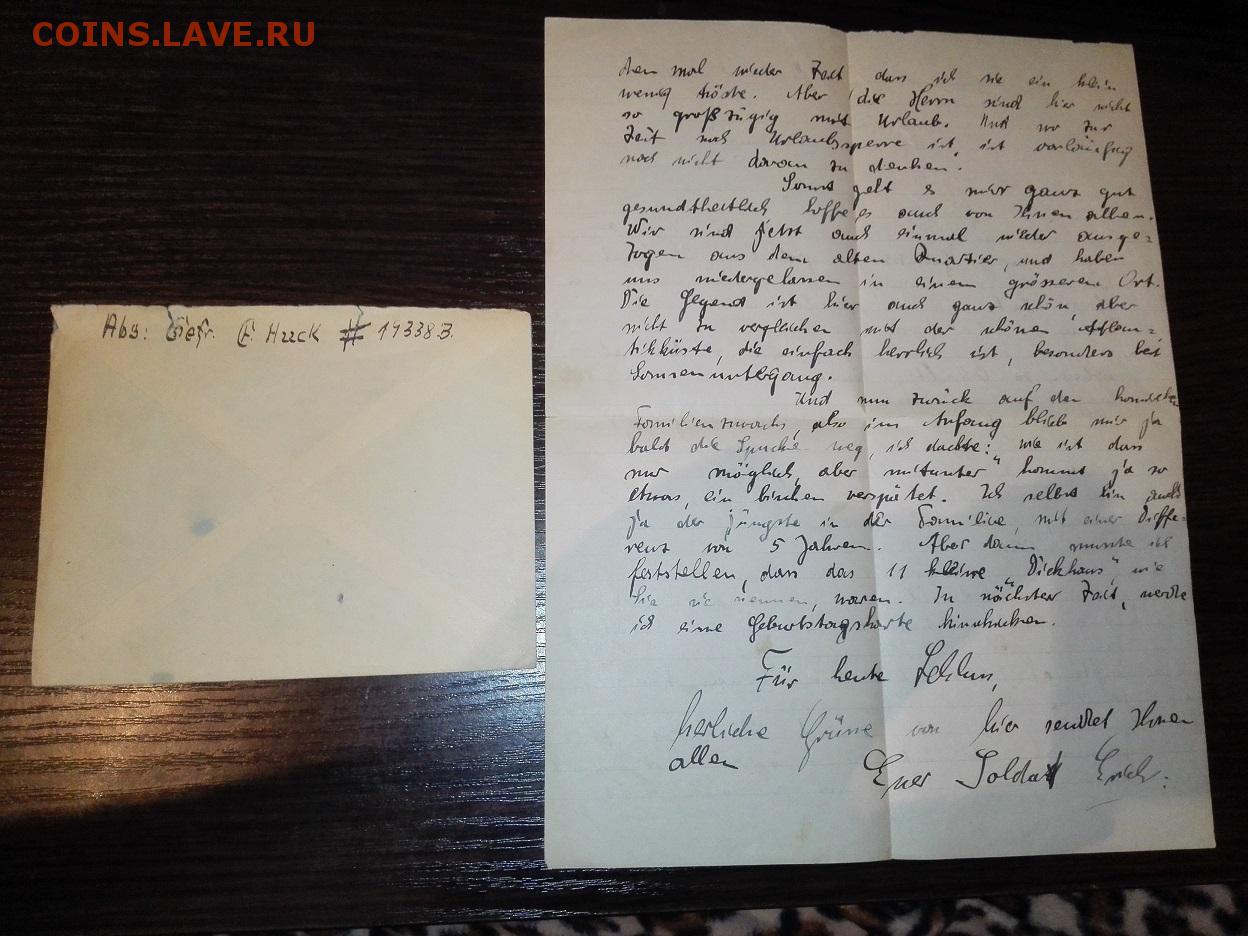 COINS.LAVE.RU
Abs: Gefr. E. Huck # 19338 B.
mal wieder Zeit, dass ich sie ein klein
wenig tröste. Aber die Herrn sind hier nicht
so großzügig mit Urlaub. Und wo zur
Zeit noch Urlaubssperre ist, ist vorläufig
noch nicht daran zu denken.
Sonst geht es mir ganz gut
gesundheitlich, hoffe es auch von Ihnen allen.
Wir sind jetzt auch einmal wieder ausge=
zogen aus dem alten Quartier, und haben
uns niedergelassen in einem grösseren Ort.
Die Gegend ist hier auch ganz schön, aber
nicht zu vergleichen mit der schönen Atlan=
tikküste, die einfach herrlich ist, besonders bei
Sonnenuntergang.
Und nun zurück auf den
Familienzuwachs, also im Anfang blieb mir ja
bald die Spucke weg, ich dachte: wie ist das
nur möglich, aber mitunter" kommt ja so
etwas, ein bischen verspätet. Ich selbst bin auch
ja der jüngste in der Familie, mit einer Diffe=
renz von 5 Jahren. Aber dann musste ich
feststellen, dass das 11 kleine "Dickhaus", wie
Sie sie nennen, waren. In nächster Zeit, werde
ich eine Geburtstagskarte
Für heute Schluss,
herliche Grüsse von hier sendet Ihnen
allen Euer Soldat Erich.